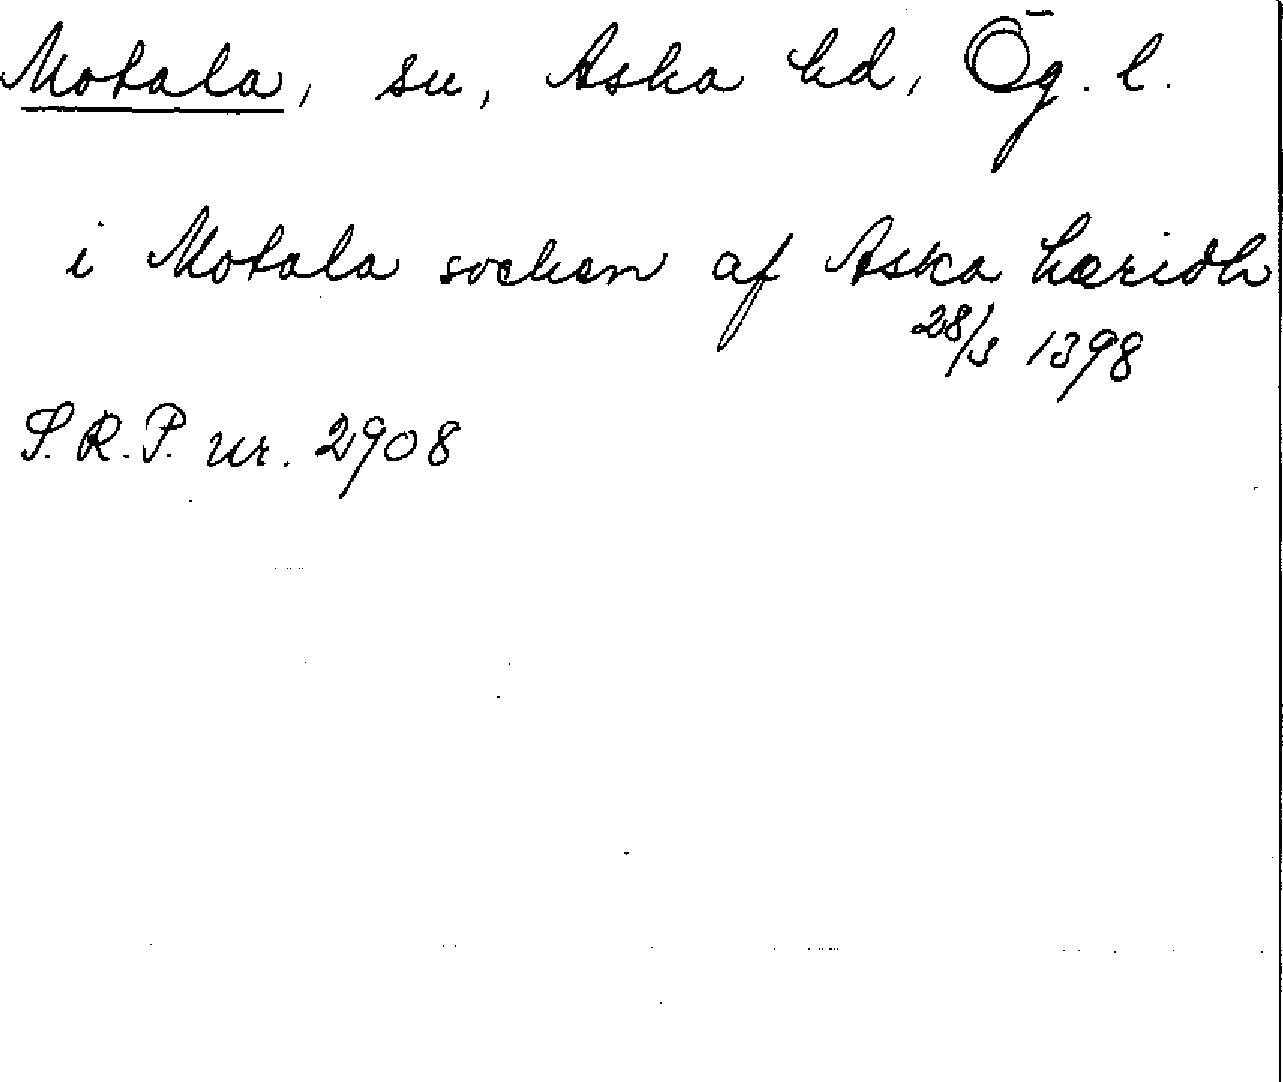 Motala, sn, Aska hd, Ög. l.
i Motala socken af Aska hæridh
28/3 1398
S.R.P. nr. 2908